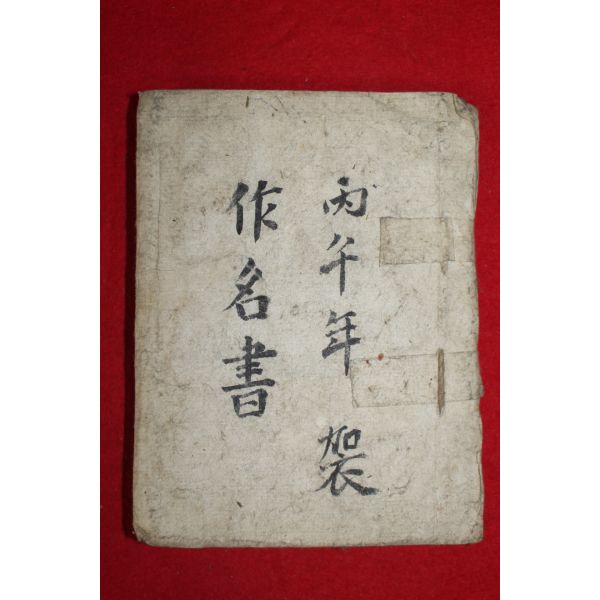 丙午年 袈
作名書